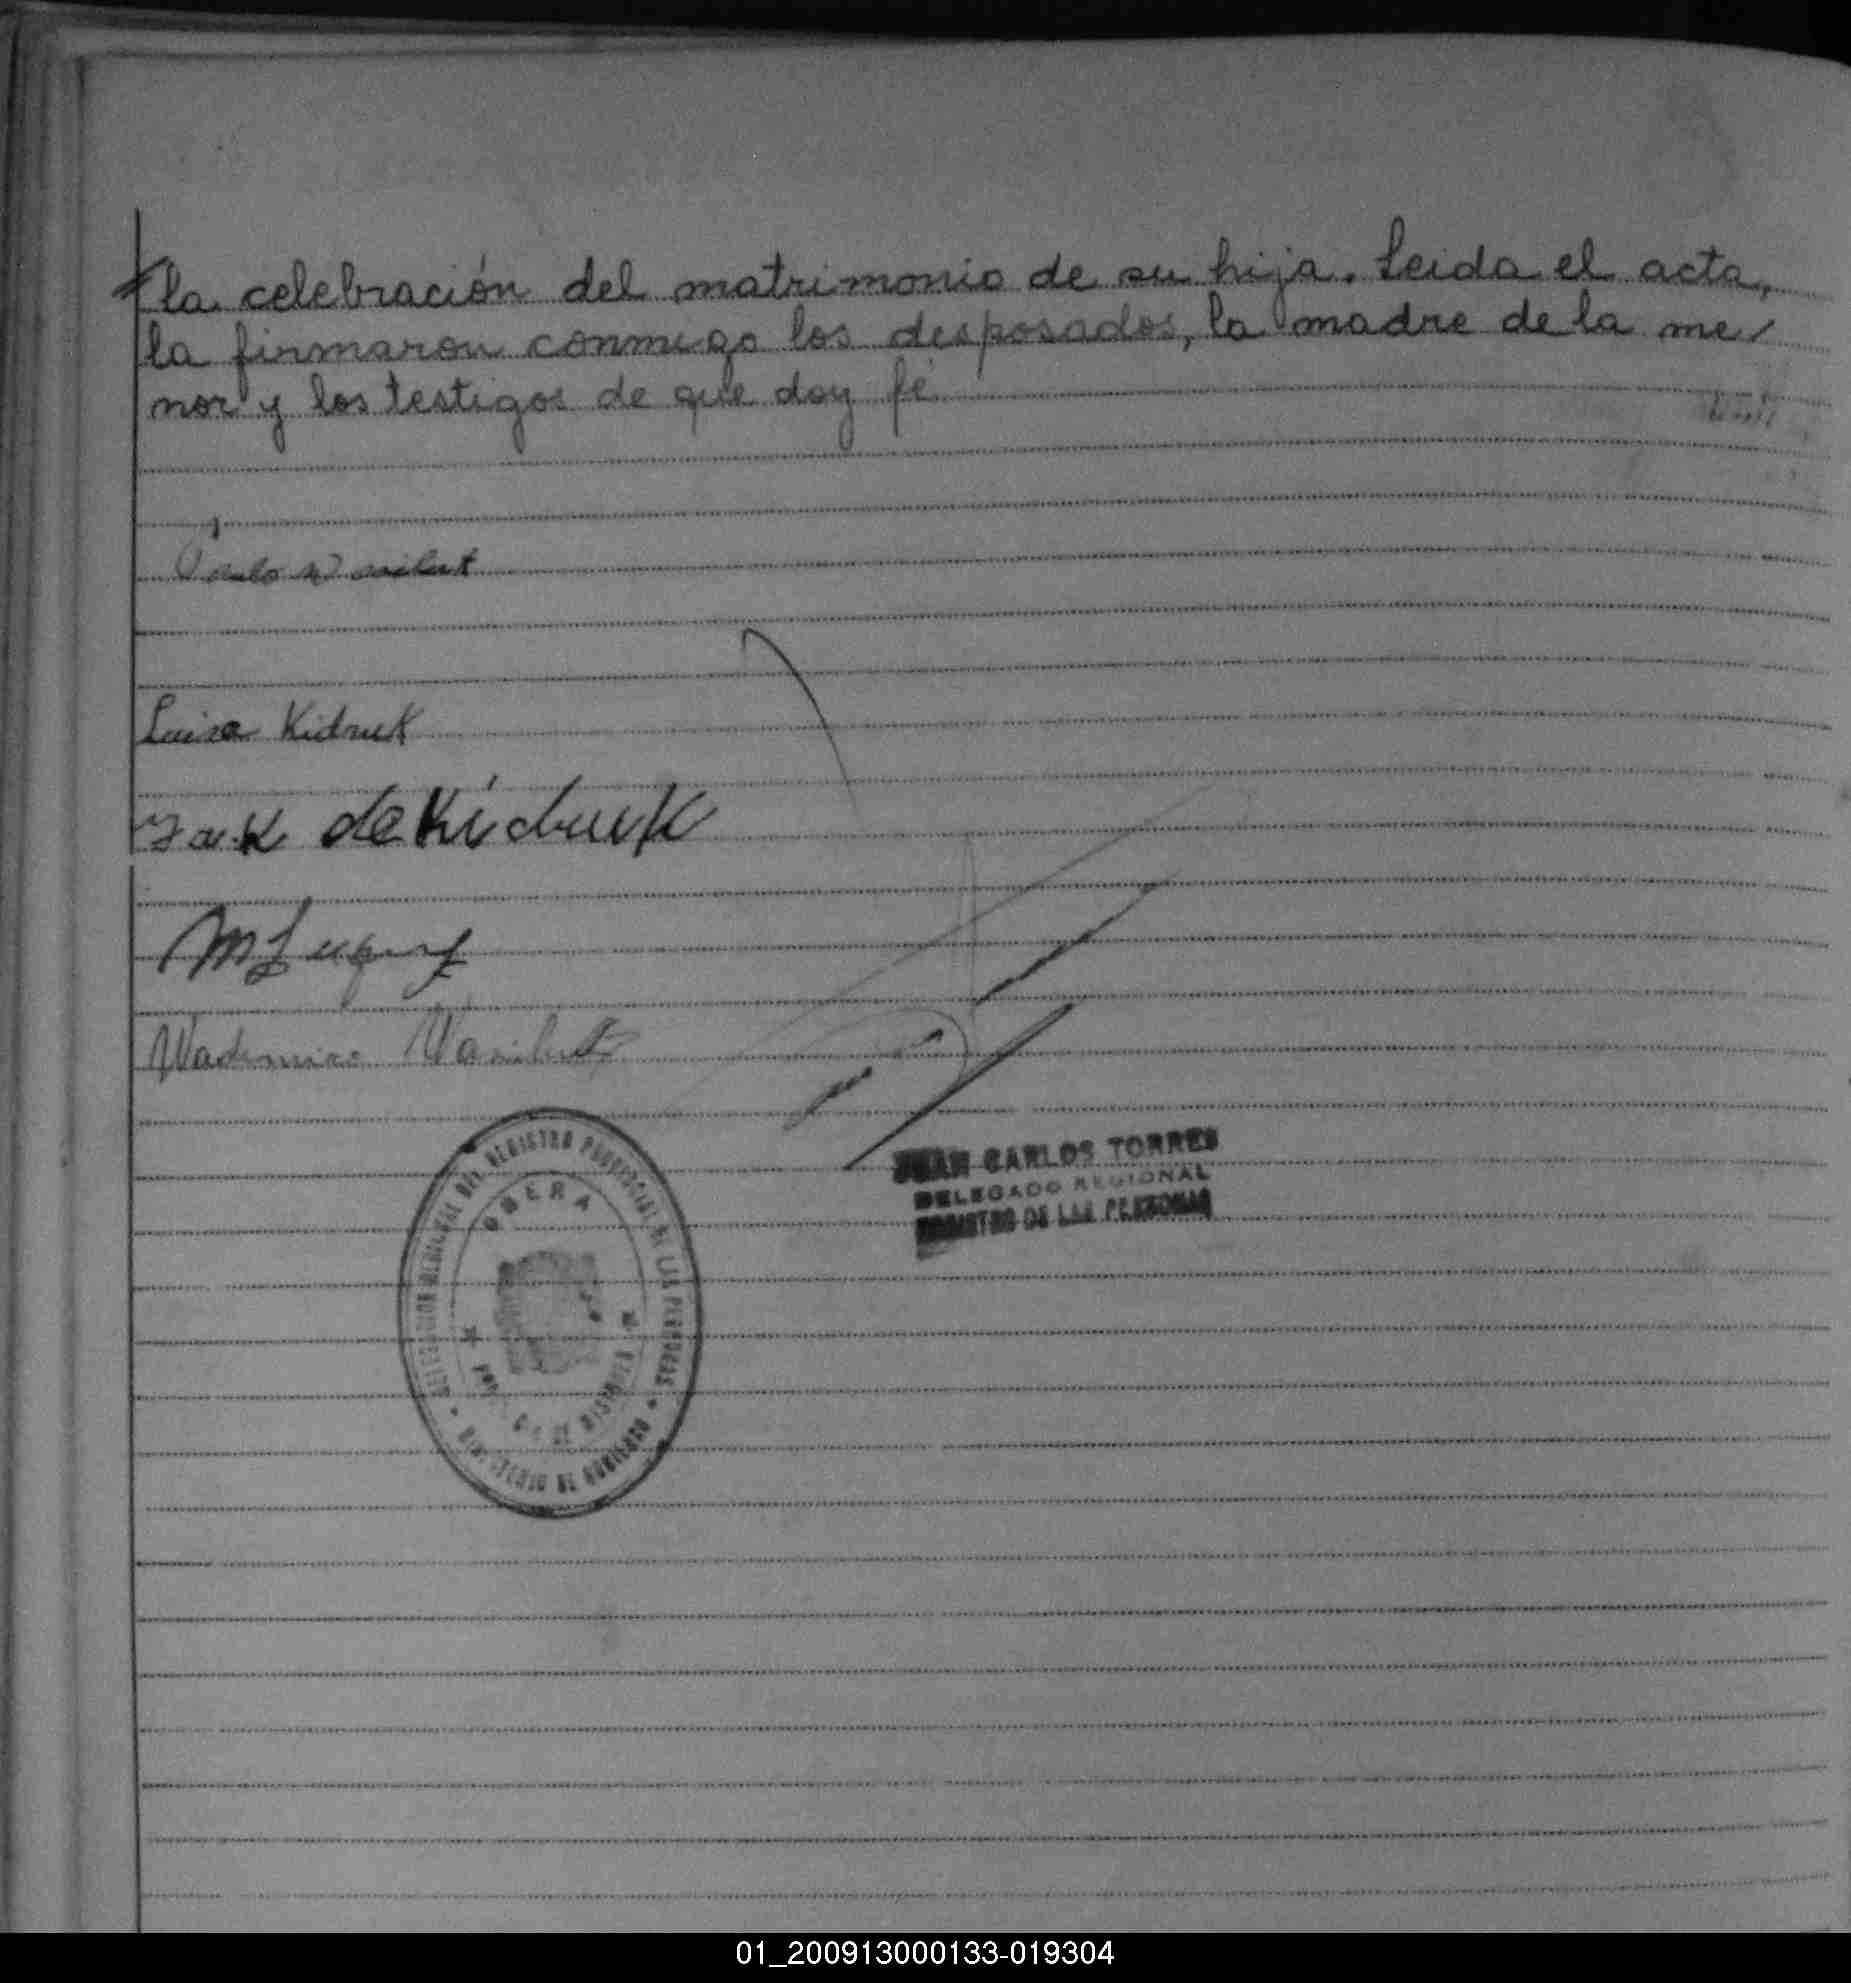 la celebración del matrimonio de su hija. Leida el acta,
la firmaron conmigo los desposados, la madre de la me/
nor y los testigos de que doy fé
Luisa Kidruk
de Kidruk
DELEGACION REGIONAL DEL REGISTRO PROVINCIAL DE LAS PERSONAS
OBERA
PROVINCIA DE MISIONES
MINISTERIO DE GOBIERNO
JUAN CARLOS TORRES
DELEGADO REGIONAL
REGISTRO DE LAS PERSONAS
01_200913000133-019304